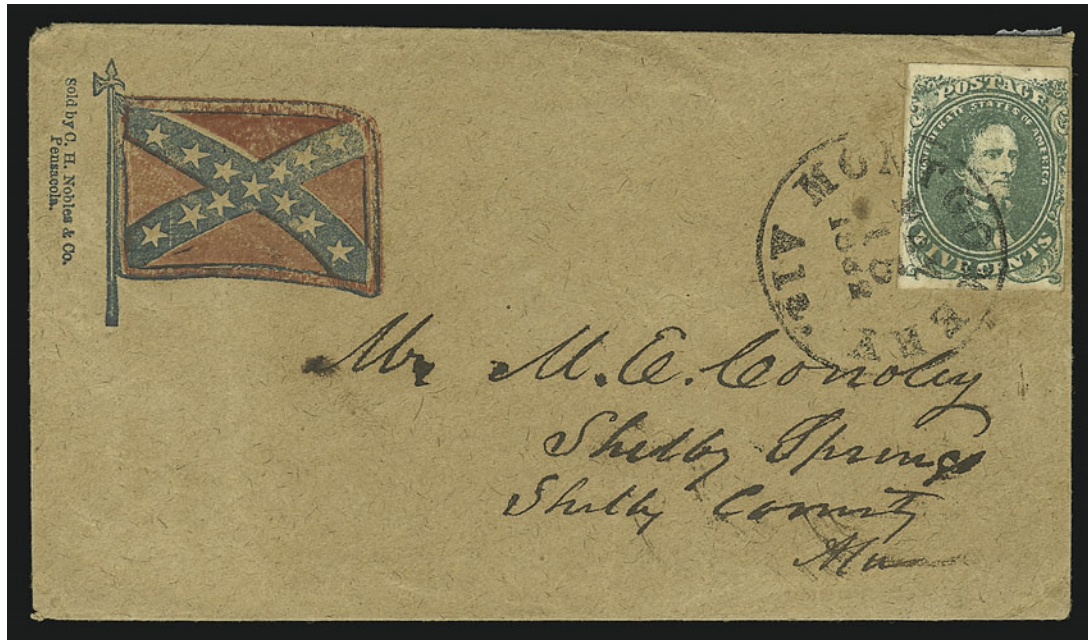 Sold by C. H. Nobles & Co.
Pensacola.
POSTAGE
CONFEDERATE STATES OF AMERICA
FIVE CENTS
MONTGOMERY Ala.
Mr M. E. Conoley
Shelby Springs
Shelby County
Ala